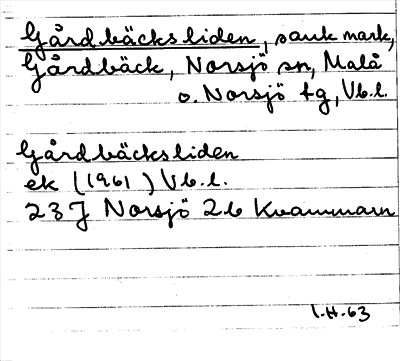 Gårdbäcksliden, sank mark,
Gårdbäck, Norsjö sn, Malå
o. Norsjö tg, Vb.l.
Gårdbäcksliden
ek (1961) Vb.l.
23J Norsjö 2b Kvammarn
I.H.63